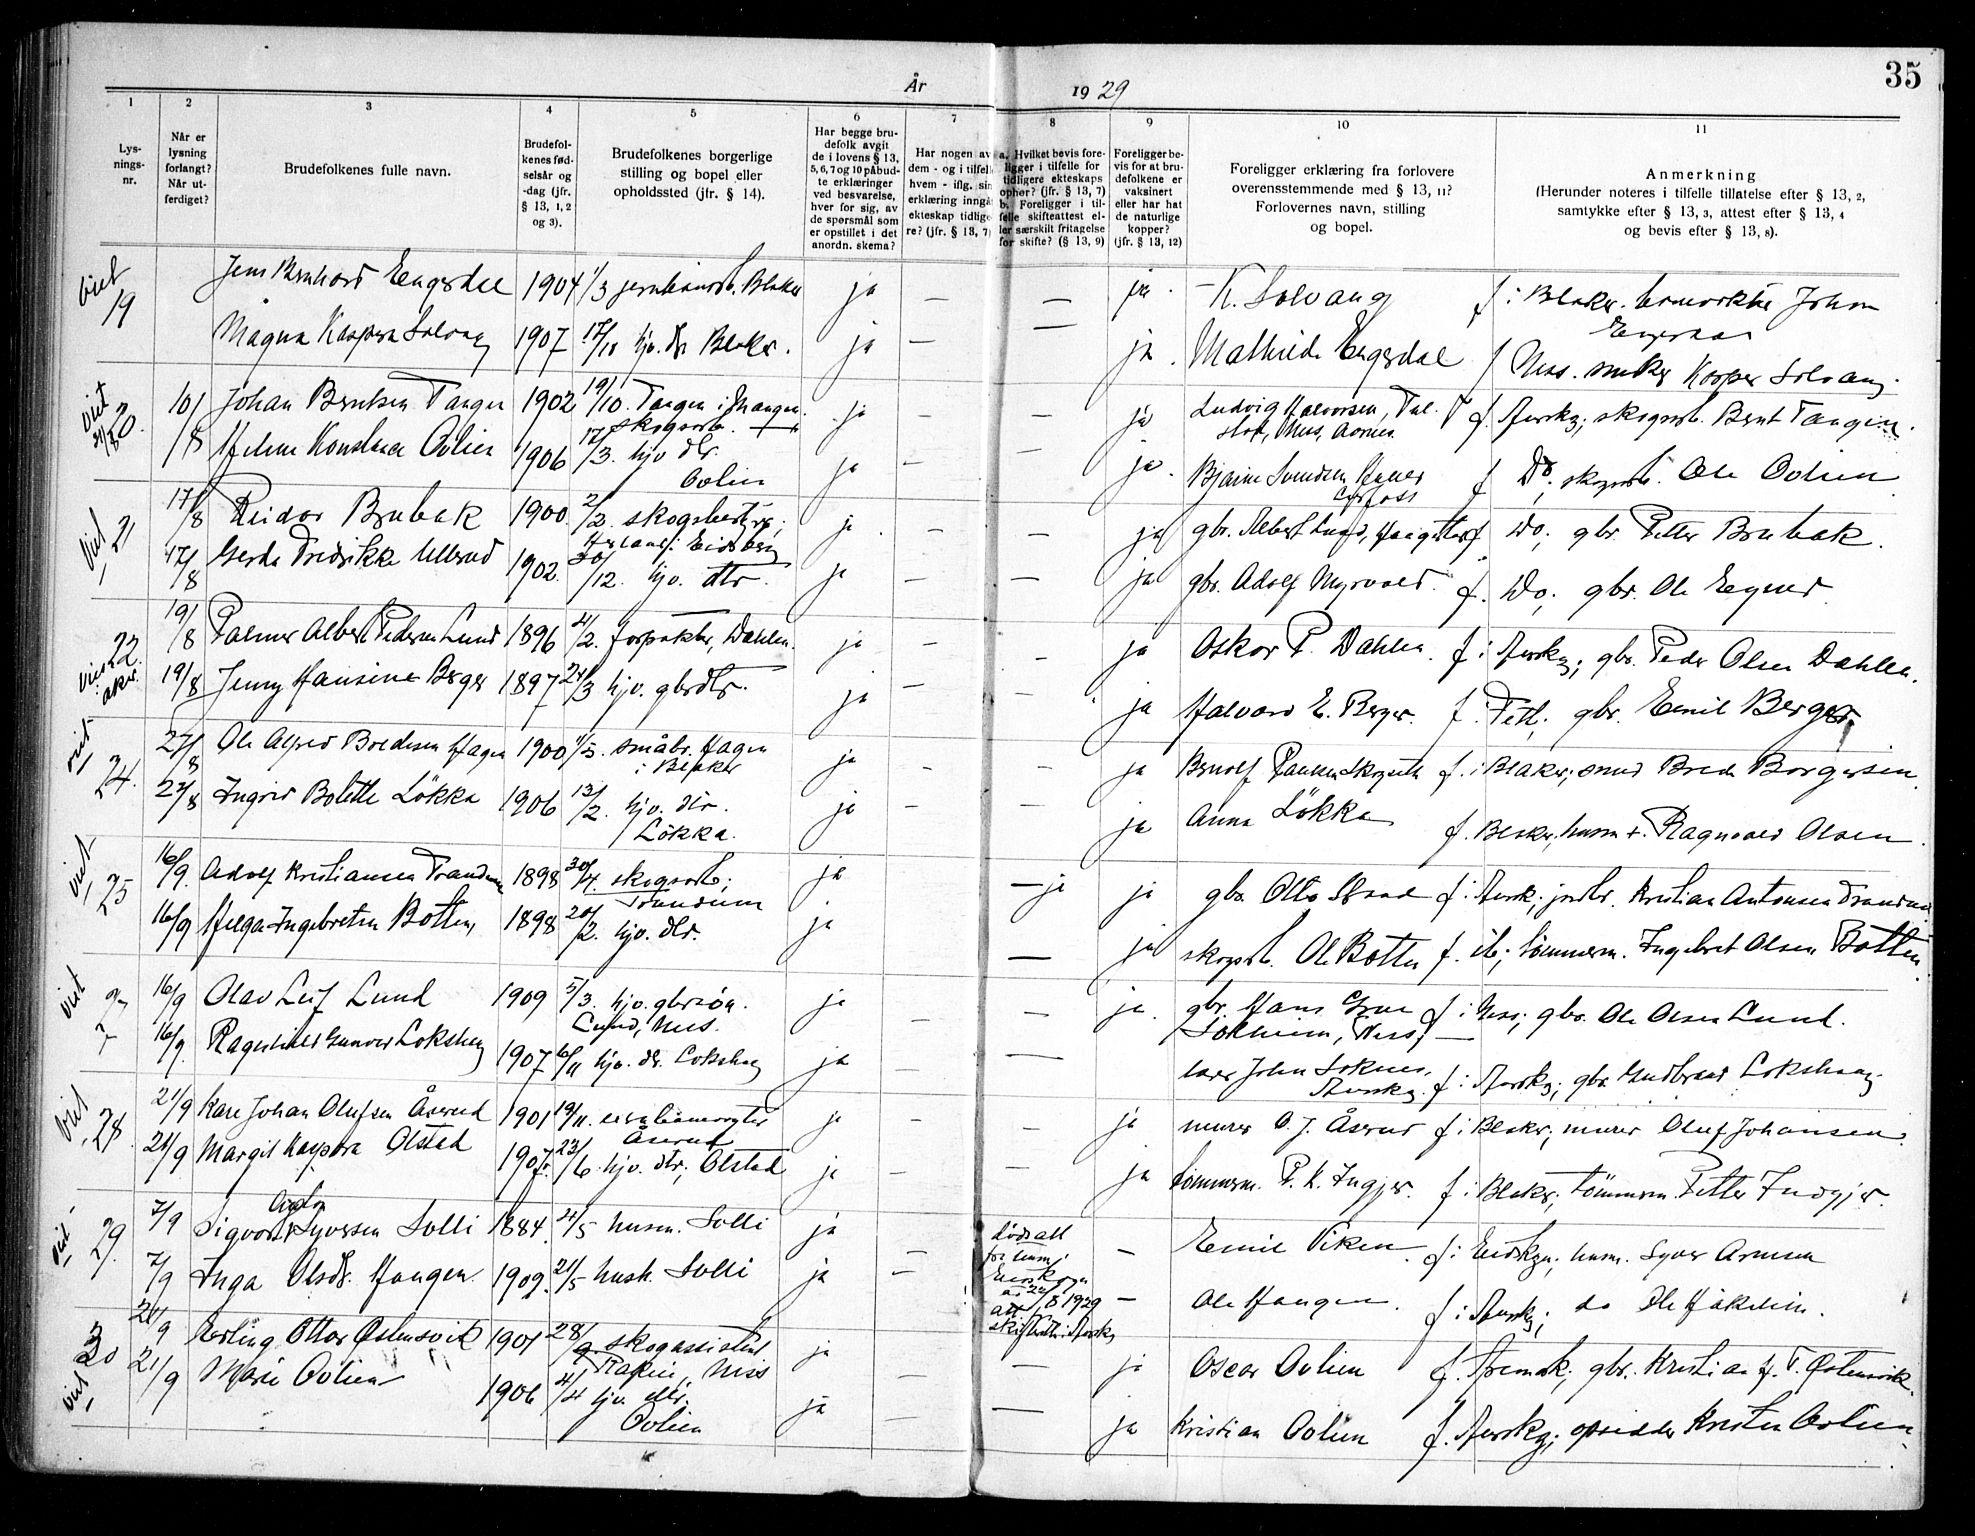 År 1929
35
1 2 3 4 5 6 7 8 9 10 11
Lys-
nings-
nr.
Når er
lysning
forlangt?
Når ut-
ferdiget?
Brudefolkenes fulle navn.
Brudefol-
kenes fød-
selsår og
-dag (jfr.
§ 13, 1, 2
og 3).
Brudefolkenes borgerlige
stilling og bopel eller
opholdssted (jfr. § 14).
Har begge bru-
defolk avgit
de i lovens § 13,
5, 6, 7 og 10 påbud-
te erklæringer
ved besvarelse,
hver for sig, av
de spørsmål som
er opstillet i det
anordn. skema?
Har nogen av
dem - og i tilfelle
hvem - iflg. sin
erklæring inngåt
ekteskap tidlige-
re? (jfr. § 13, 7)
a. Hvilket bevis fore-
ligger i tilfelle for
tidligere ekteskaps
ophør? (jfr. § 13, 7)
b. Foreligger i til-
felle skifteattest el-
ler særskilt fritagelse
for skifte? (§ 13, 9)
Foreligger be-
vis for at bru-
defolkene er
vaksinert
eller har hat
de naturlige
kopper?
(jfr. § 13, 12)
Foreligger erklæring fra forlovere
overensstemmende med § 13, 11?
Forlovernes navn, stilling
og bopel.
Anmerkning
(Herunder noteres i tilfelle tillatelse efter § 13, 2,
samtykke efter § 13, 3, attest efter § 13, 4
og bevis efter § 13, 8).
viet 19 Jens Bernhard Engerdal 1904 1/3 Blaker ja — — ja K. Solvang f. i Blaker. Johan
Engerdal
Magna Kaspara Solvang 1907 17/10 hjv. dtr. Blaker. ja — — ja Mathilde Engerdal f Ness. Kasper Solvang.
viet 20. 10/8 Johan Berntsen Tangen 1902 19/10. Tangen i Mangen. ja — — ja Ludvig Halvorsen, f. Aursk; skogsarb. Bernt Tangen.
skogsarb. Nes, Aarnes.
Konstanse Ovlien 1906 17/3. hjv. dtr. ja — — ja. Bjarne Svendsen f Do; skogsarb. Ole Ovlien
Ovlien
viet 21 17/8 Reidar Brubak 1900 2/2. skogsbestyrer; ja — — ja gbr. Albert Lund, f Do; gbr. Petter Brubak.
i Eidsberg
17/8 Gerda Fredrikke Ullerud 1902 30/12. hjv. dtr. ja — — ja gbr. Adolf Myrvold. f. Do; gbr. Ole
viet 22. 19/8 Palmer Albert Pedersen Lund 1896 4/2. forpakter, Dahlen. ja — — ja Oskar P. Dahlen. f. i Aursk; gbr. Peder Olsen Dahlen.
i aker 19/8 Jenny Hansine Berger 1897 24/3 hjv. gbrdtr. ja — ja Halvard E. Berger. f. Fet; gbr. Emil Berger
viet 24. 27/8 Ole Alfred Bredesen Hagen 1900 1/5. småbr. Hagen ja — — ja f. i Blaker; smed Brede Borgersen
i Blaker
27/8 Ingrid Bolette Løkka 1906 13/2. hjv. dtr. ja — — ja Anna Løkka f. Blaker, husm. Ragnvald Olsen
Løkka.
viet 25 16/9. Adolf Kristiansen Trandum 1898 30/4. skogsarb; ja — ja ja gbr. Otto f. i Aursk; jordbr. Kristian Antonsen Trandum
Trandum
16/9 Helga Ingebretsen Botten, 1898 20/2. hjv. dtr. ja — ja skogsarb. Ole Botten f. ib; tømmerm. Ingebret Olsen Botten.
viet 16/9 Olav Leif Lund 1909 5/3. hjv. gbrsøn. ja — — ja. gbr. Hans f. i Nes; gbr. Ole Olsen Lund.
Lund, Nes. Solheim, Nes;
16/9. Ragnhild Gunvor Lokshaug 1907 6/11 hjv. dtr. Lokshaug ja — lærer John f. i Aursk; gbr. Gudbrand Lokshaug.
Aursk.
viet 28. 21/9 Kåre Johan Olufsen Åserud 1901 19/11. ja — — ja murer O. J. Åserud f. i Blaker; murer Oluf Johansen.
Åserud
21/9 Margit Kaspara Olstad 1907. 23/6. hjv. dtr; Olstad ja — — ja tømmerm. P. K. f. i Blaker; tømmerm. Petter
viet 29. 7/9 Sigvart Syversen Solli 1884. 4/5 husm. Solli ja — Dødsatt — Emil Viken f. i Eidskog; husm. Syver Arnesen
for husm;
7/9 Inga Olsdtr. Haugen. 1909. 21/5 hush. Solli ja — Eidskog — Ole Haugen. f. i Aursk; do Ole
1929
viet 30 21/9 Erling Ottar Østensvik 1901 28/9. skogassistent ja — — ja Oscar Ovlien f. Aremark; gbr. Kristian f. T. Østensvik.
Nes
21/9 Marie Ovlien 1906 4/4 hjv. dtr. ja — — ja Kristian Ovlien f. Aursk; opsidder Kristen Ovlien.
Ovlien